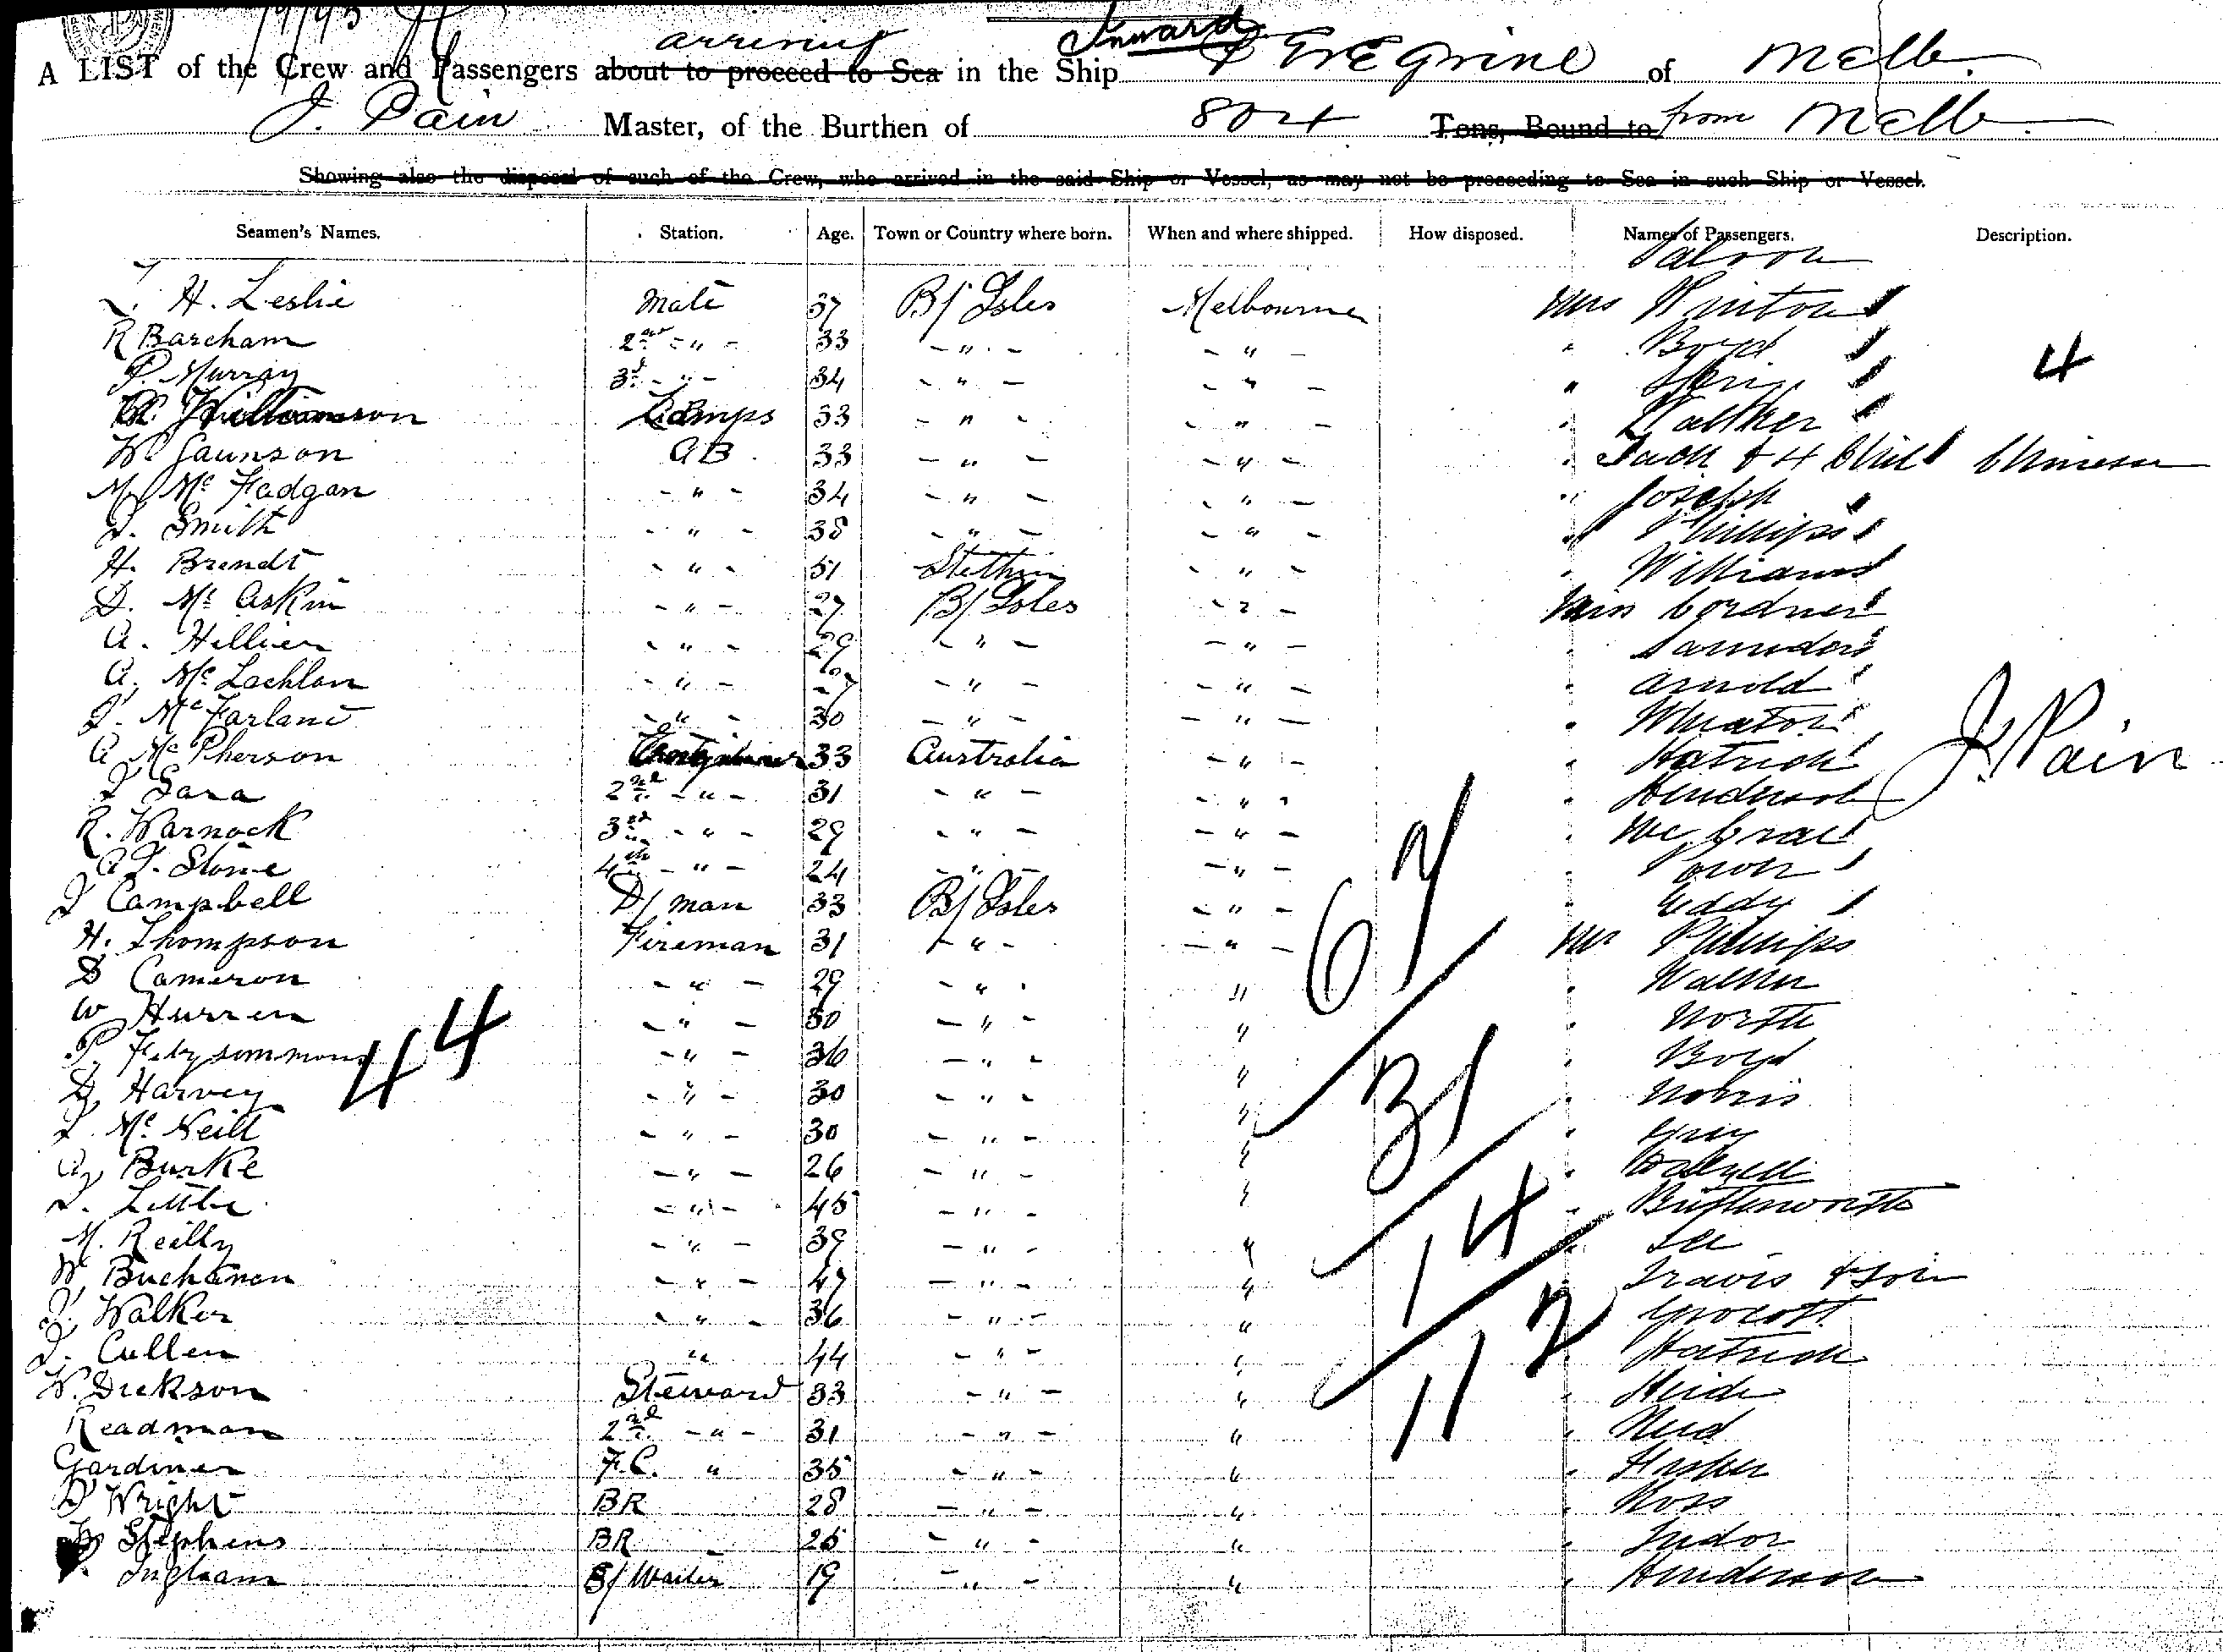 1/9/93
Inward
arriving
A LIST of the Crew and Passengers about to proceed to Sea in the Ship Peregrine of Melb.
J. Pain Master, of the Burthen of 804 Tons, Bound to from Melb.
Showing also the disposal of such of the Crew, who arrived in the said Ship or Vessel, as may not be proceeding to Sea in such Ship or Vessel.
Seamen's Names. Station. Age. Town or Country where born. When and where shipped. How disposed. Names of Passengers. Description.
Saloon
H. Leslie Mate 37 B/ Isles Melbourne Mrs Winton
R Barcham 2nd - " - 33 - " - - " - " Boyd
P. Murray 3d - " - 34 - " - - " - " 4
Williamson Lamps 33 - " - - " - " Walker
W. Gaunson AB 33 - " - - " - " & 4 Chil Chinese
M Mc Fadgan - " - 34 - " - - " - " Joseph
J. Smith - " - 38 - " - - " - " Phillips
H. Brendt - " - 51 Stettin - " - " Williams
D. Mc Askin - " - 27 B/ Isles - " - Miss Cordner
A. Hillier - " - 29 - " - - " - " Saunders
A. Mc Lachlan - " - 27 - " - - " - " Arnold
J. Mc Farland - " - 30 - " - - " - " Wheaton
A Mc Pherson 33 Australia - " - " Hatrick
J Sara 2nd - " - 31 - " - - " - " Henderson
J. Pain
R. Warnock 3rd - " - 29 - " - - " - " Mc Crae
A J. Stone 4th - " - 24 - " - - " - " Power
J Campbell D/ man 33 B/ Isles - " - " Eddy
H. Thompson Fireman 31 - " - - " - Mr Phillips
D Cameron - " - 29 - " - " " Walker
W Hurren - " - 30 - " - " " North
P. Fitzsimmons - " - 36 - " - " " Boyd
D. Harvey - " - 30 - " - " " Norris
J. Mc Neill - " - 30 - " - " " Grey
A. Burke - " - 26 - " - " " Dalzell
J. Little - " - 45 - " - " " Butterworth
M. Reilly - " - 39 - " - " " Lee
W. Buchanan - " - 47 - " - " " Travis & Son
J. Walker - " - 36 - " - " "
J. Cullen " 44 - " - " " Hatrick
W. Dickson Steward 33 - " - " "
Readman 2nd - " - 31 - " - " " Reid
Gardiner F.C. " 35 - " - " "
D Wright BR 28 - " - " " Ross
Stephens BR 25 - " - " " Tudor
Ingham B/ Waiter 19 - " - " " Henderson
44
67
31
14
112